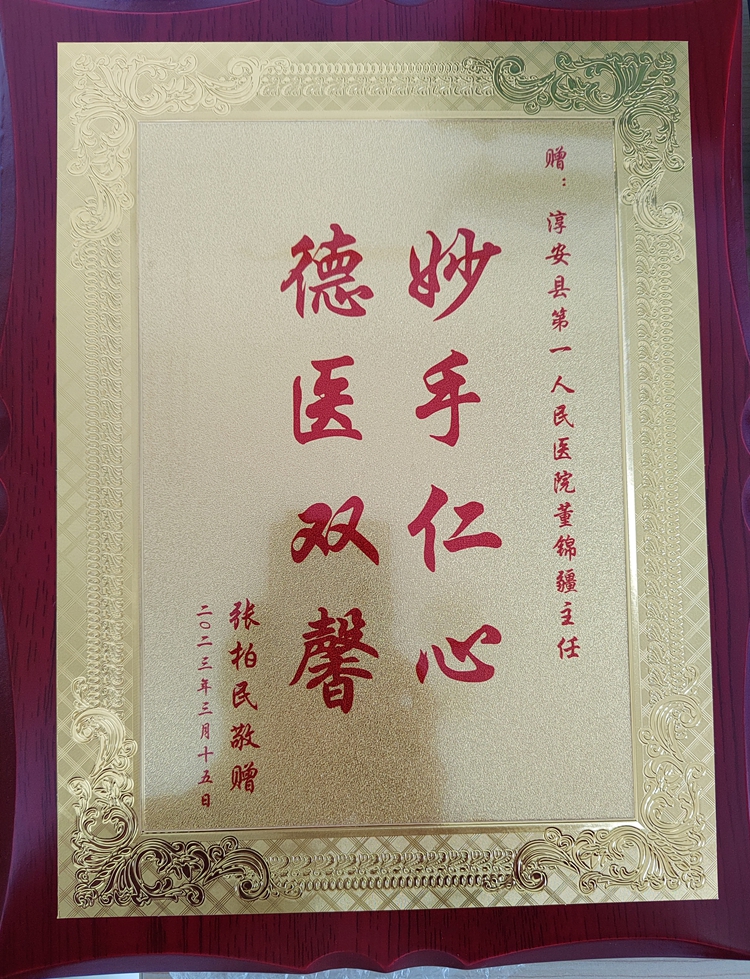 赠：淳安县第一人民医院董锦疆主任
妙手仁心
德医双馨
张柏民敬赠
二〇二三年三月十五日